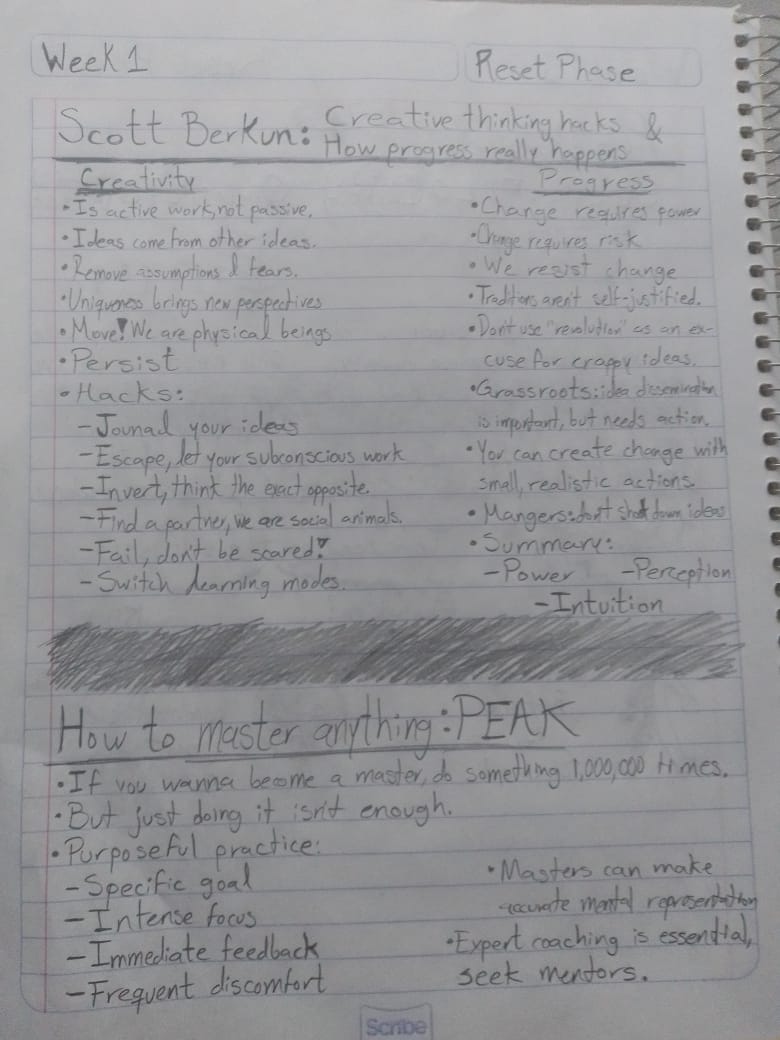 Week 1
Reset Phase
Scott Berkun: Creative thinking hacks &
How progress really happens
Creativity
• Is active work, not passive.
• Ideas come from other ideas.
• Remove assumptions & fears.
• Uniqueness brings new perspectives
• Move! We are physical beings
• Persist
• Hacks:
- Jounad your ideas
- Escape, let your subconscious work
- Invert, think the exact opposite.
- Find a partner, we are social animals.
- Fail, don't be scared!
- Switch learning modes.
Progress
• Change requires power
• Change requires risk
• We resist change
• Traditions aren't self-justified.
• Don't use "revolution" as an ex-
cuse for crappy ideas.
• Grassroots: idea dissemination
is important, but needs action.
• You can create change with
small, realistic actions.
• Mangers: don't shut down ideas
• Summary:
- Power - Perception
- Intuition
How to master anything: PEAK
• If you wanna become a master, do something 1,000,000 times.
• But just doing it isn't enough.
• Purposeful practice:
- Specific goal
- Intense focus
- Immediate feedback
- Frequent discomfort
• Masters can make
accurate mental representation
• Expert coaching is essential,
seek mentors.
Scribe